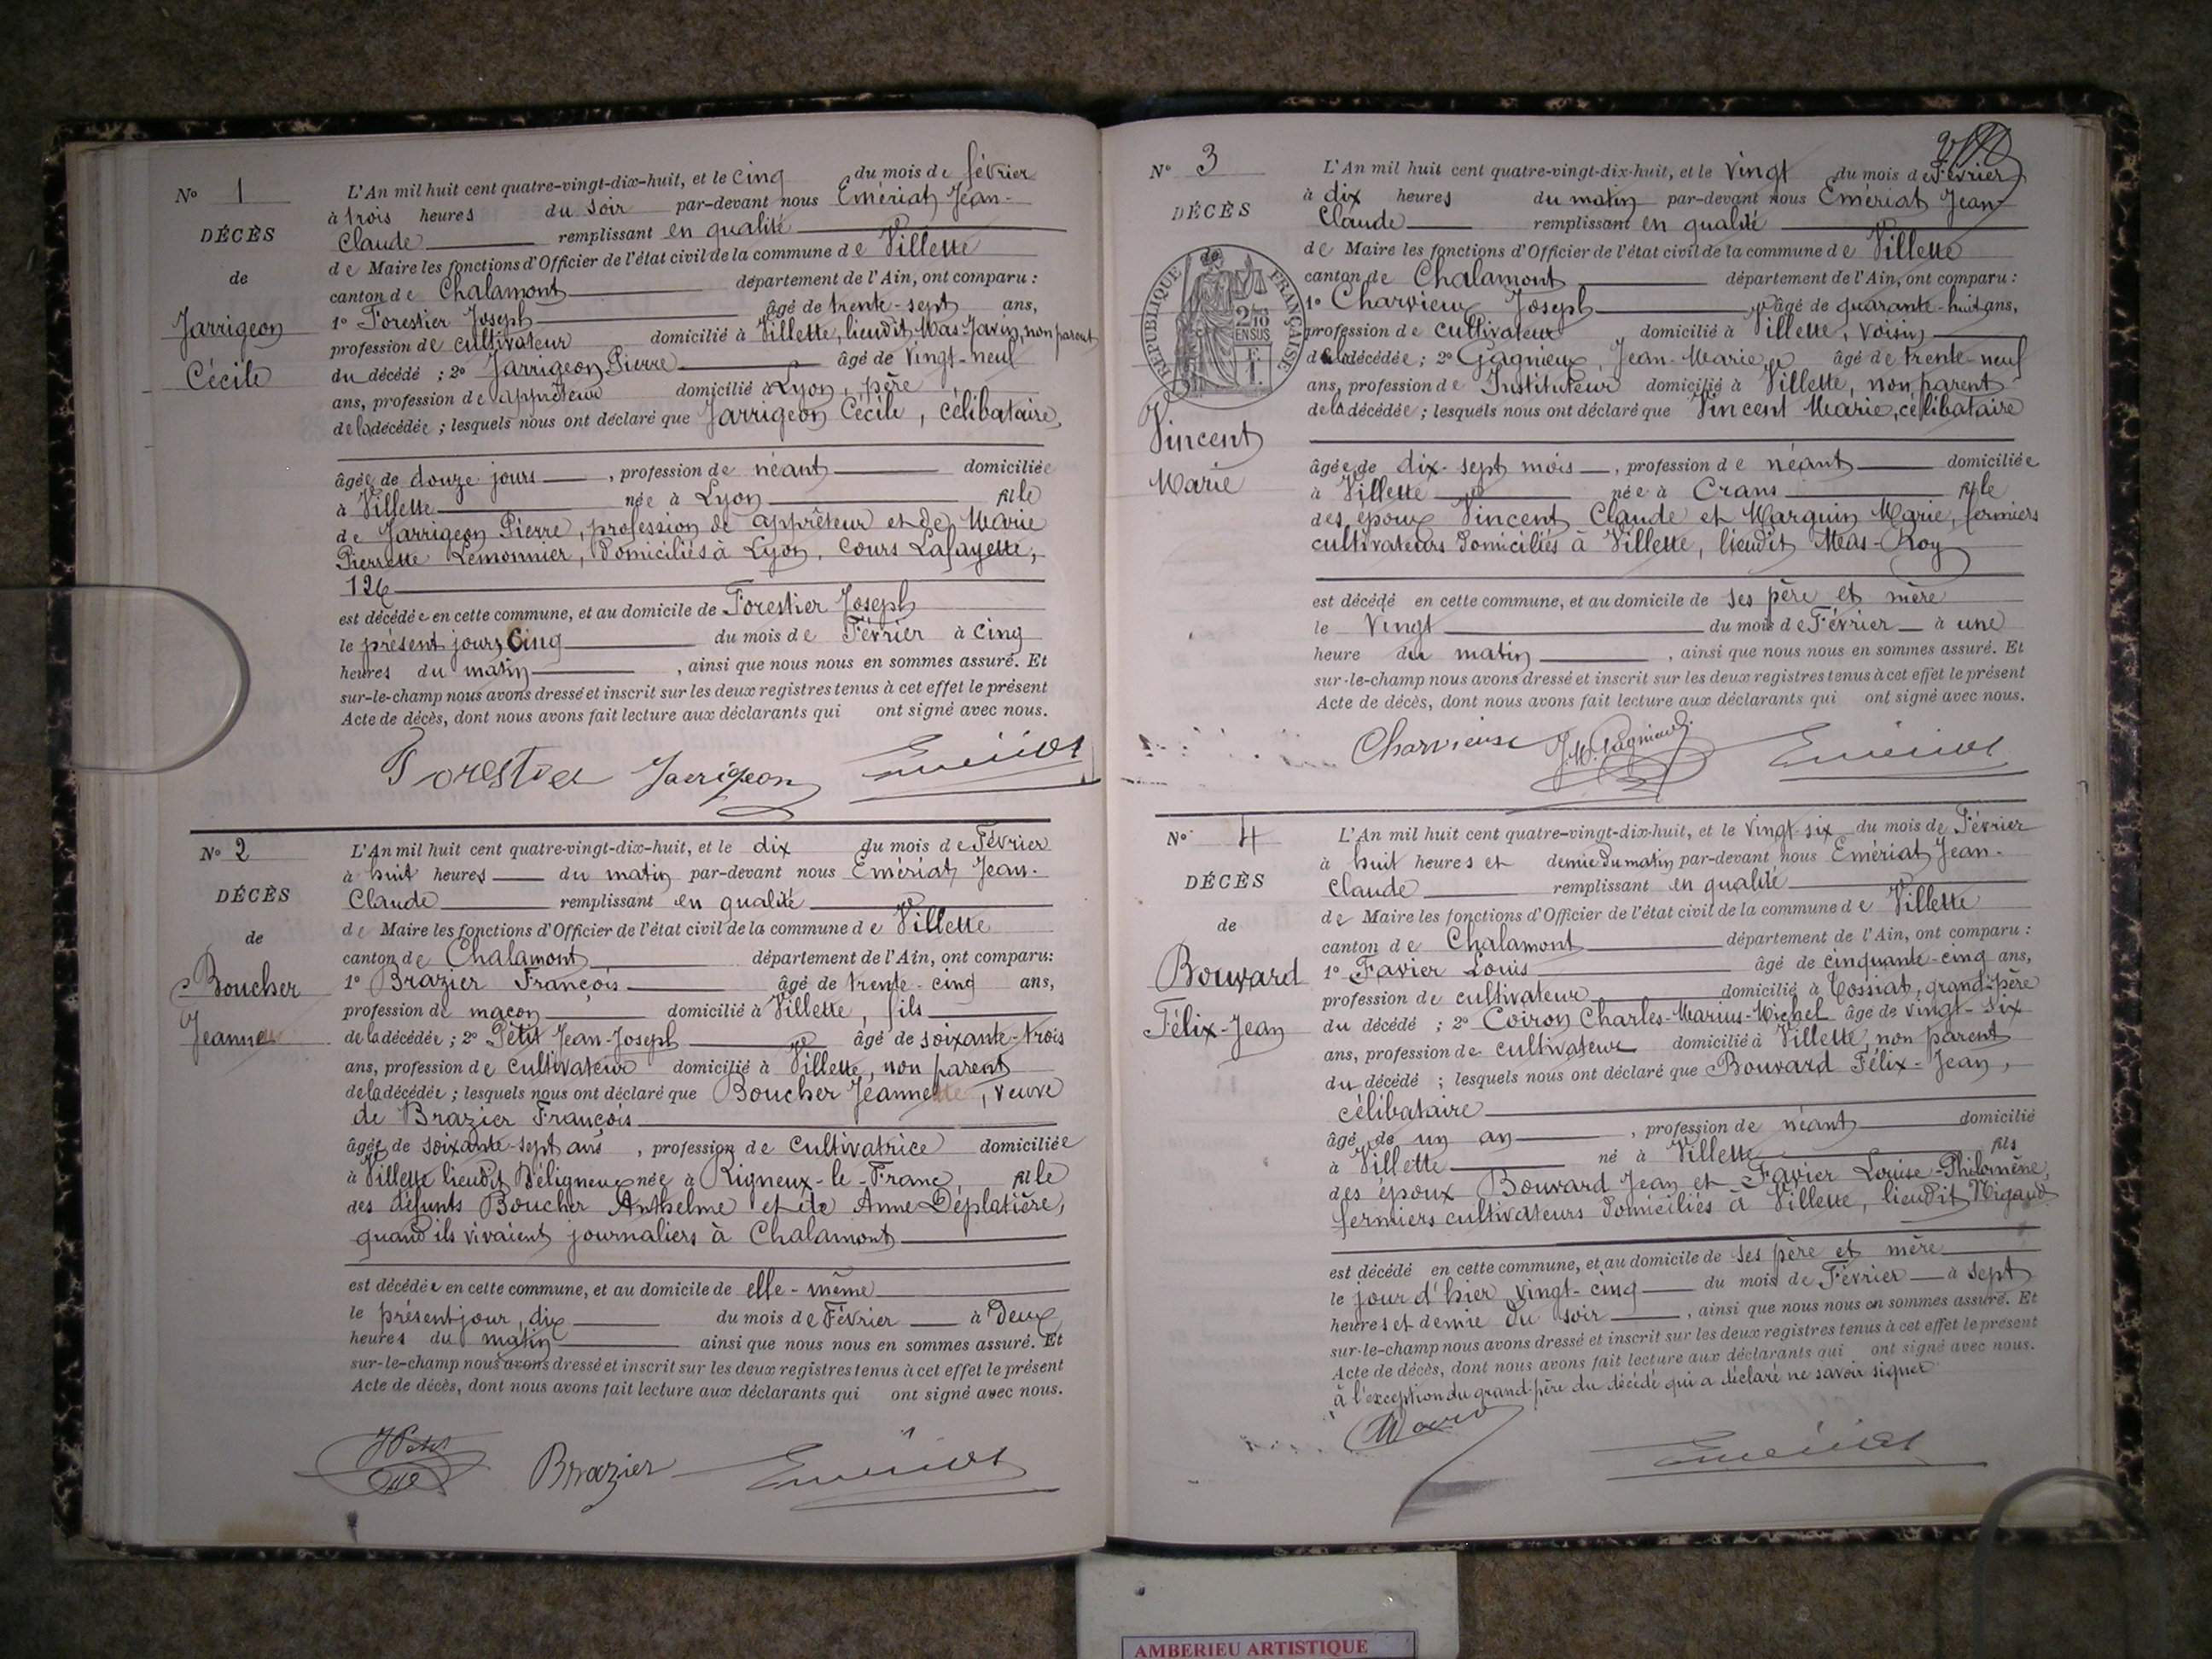 N° 1
DÉCÈS
de
Jarrigeon
Cécile
L'An mil huit cent quatre-vingt-dix-huit, et le cinq du mois de février
à trois heures du soir par-devant nous Emériat Jean-
Claude remplissant en qualité
de Maire les fonctions d'Officier de l'état civil de la commune de Villette
canton de Chalamont département de l'Ain, ont comparu :
1° Forestier Joseph âgé de trente-sept ans,
profession de cultivateur domicilié à Villette, lieudit Mas-Javin, non parent
du décédé ; 2° Jarrigeon Pierre âgé de vingt-neuf
ans, profession de apprêteur domicilié à Lyon, père
de la décédée ; lesquels nous ont déclaré que Jarrigeon Cécile, célibataire,
âgée de douze jours, profession de néant domiciliée
à Villette née à Lyon fille
de Jarrigeon Pierre, profession de apprêteur et de Marie
Pierrette Lemonnier, domiciliés à Lyon, cours Lafayette,
126
est décédée en cette commune, et au domicile de Forestier Joseph
le présent jour, cinq du mois de Février à cinq
heures du matin, ainsi que nous nous en sommes assuré. Et
sur-le-champ nous avons dressé et inscrit sur les deux registres tenus à cet effet le présent
Acte de décès, dont nous avons fait lecture aux déclarants qui ont signé avec nous.
Forestier Jarrigeon Emériat
N° 2
DÉCÈS
de
Boucher
Jeanne
L'An mil huit cent quatre-vingt-dix-huit, et le dix du mois de Février
à huit heures du matin par-devant nous Emériat, Jean-
Claude remplissant en qualité
de Maire les fonctions d'Officier de l'état civil de la commune de Villette
canton de Chalamont département de l'Ain, ont comparu:
1° Brazier François âgé de trente-cinq ans,
profession de maçon domicilié à Villette, fils
de la décédée ; 2° Petit Jean-Joseph âgé de soixante-trois
ans, profession de cultivateur domicilié à Villette, non parent
de la décédée ; lesquels nous ont déclaré que Boucher Jeanne, veuve
de Brazier François
âgée de soixante-sept ans, profession de cultivatrice domiciliée
à Villette lieudit Béligneux née à Rigneux-le-Franc, fille
des défunts Boucher Anthelme et de Anne Déplatière,
quand ils vivaient journaliers à Chalamont
est décédée en cette commune, et au domicile de elle-même
le présent jour, dix du mois de Février à deux
heures du matin ainsi que nous nous en sommes assuré. Et
sur-le-champ nous avons dressé et inscrit sur les deux registres tenus à cet effet le présent
Acte de décès, dont nous avons fait lecture aux déclarants qui ont signé avec nous.
Brazier Emériat
N° 3
DÉCÈS
de
RÉPUBLIQUE FRANÇAISE
2/10
EN SUS
Vincent
Marie
L'An mil huit cent quatre-vingt-dix-huit, et le vingt du mois de Février
à dix heures du matin par-devant nous Emériat Jean-
Claude remplissant en qualité
de Maire les fonctions d'Officier de l'état civil de la commune de Villette
canton de Chalamont département de l'Ain, ont comparu :
1° Charvieux Joseph âgé de quarante-huit ans,
profession de cultivateur domicilié à Villette, voisin
de la décédée ; 2° Gagnieux, Jean-Marie âgé de trente-neuf
ans, profession de Instituteur domicilié à Villette, non parent
de la décédée ; lesquels nous ont déclaré que Vincent Marie, célibataire
âgée de dix-sept mois, profession de néant domiciliée
à Villette née à Crans fille
des époux Vincent Claude et Marguin Marie, fermiers
cultivateurs domiciliés à Villette, lieudit Mas-Roy
est décédé en cette commune, et au domicile de ses père et mère
le vingt du mois de Février à une
heure du matin, ainsi que nous nous en sommes assuré. Et
sur-le-champ nous avons dressé et inscrit sur les deux registres tenus à cet effet le présent
Acte de décès, dont nous avons fait lecture aux déclarants qui ont signé avec nous.
Charvieux J.M. Gagnieux Emériat
N° 4
DÉCÈS
de
Bouvard
Félix-Jean
L'An mil huit cent quatre-vingt-dix-huit, et le vingt-six du mois de Février
à huit heures et demie du matin par-devant nous Emériat Jean-
Claude remplissant en qualité
de Maire les fonctions d'Officier de l'état civil de la commune de Villette
canton de Chalamont département de l'Ain, ont comparu :
1° Favier Louis âgé de cinquante-cinq ans,
profession de cultivateur domicilié à Tossiat, grand-père
du décédé ; 2° Coiron Charles-Marius-Michel âgé de vingt-six
ans, profession de cultivateur domicilié à Villette, non parent
du décédé ; lesquels nous ont déclaré que Bouvard Félix-Jean,
célibataire
âgé de un an, profession de néant domicilié
à Villette né à Villette fils
des époux Bouvard Jean et Favier Louise-Philomène,
fermiers cultivateurs domiciliés à Villette, lieudit Nigaud
est décédé en cette commune, et au domicile de ses père et mère
le jour d'hier vingt-cinq du mois de Février à sept
heures et demie du soir, ainsi que nous nous en sommes assuré. Et
sur-le-champ nous avons dressé et inscrit sur les deux registres tenus à cet effet le présent
Acte de décès, dont nous avons fait lecture aux déclarants qui ont signé avec nous.
à l'exception du grand-père du décédé qui a déclaré ne savoir signer
Emériat
AMBERIEU ARTISTIQUE